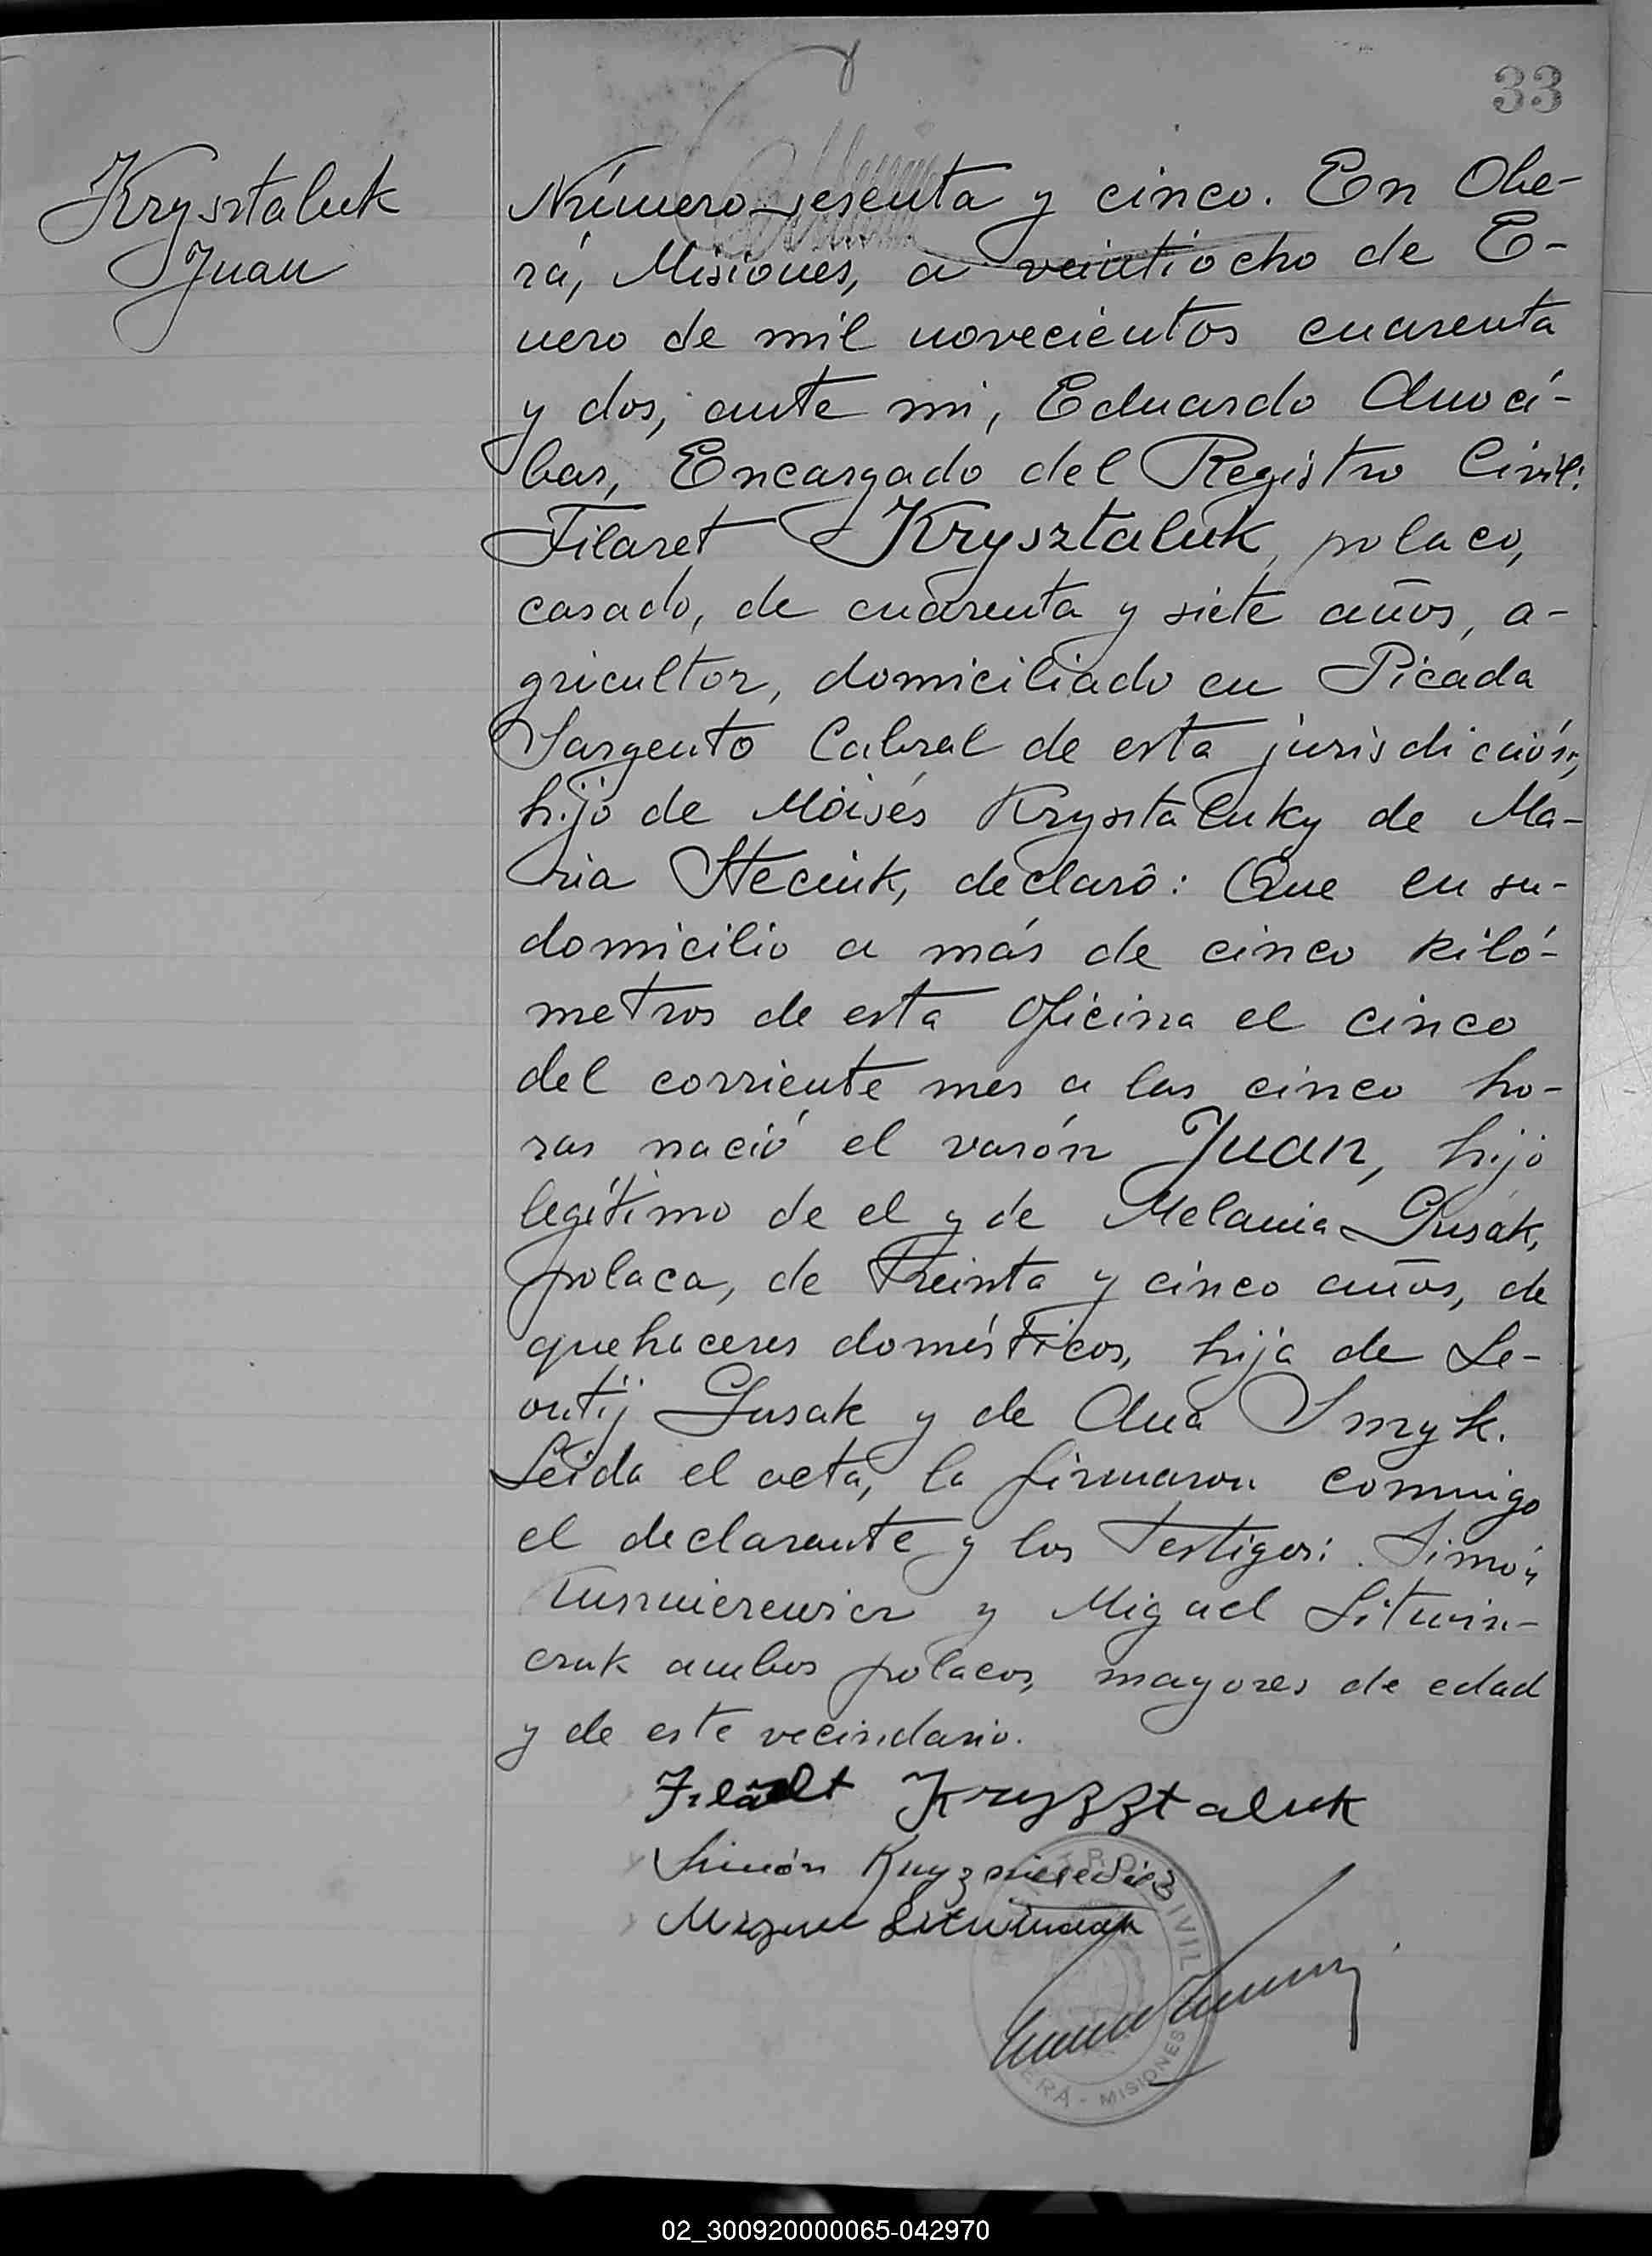 33
Krysztaluk
Juan
Número sesenta y cinco. En Obe-
rá, Misiones, a veintiocho de E-
nero de mil novecientos cuarenta
y dos, ante mi, Eduardo Amoá-
bar, Encargado del Registro Civil:
Filaret Krysztaluk, polaco,
casado, de cuarenta y siete años, a-
gricultor, domiciliado en Picada
Sargento Cabral de esta jurisdicción,
hijo de Moisés Krysztaluk y de Ma-
ria Steciuk, declaró: Que en su-
domicilio a más de cinco kiló-
metros de esta Oficina el cinco
del corriente mes a las cinco ho-
ras nació el varón Juan, hijo
legítimo de el y de Melania Gusak,
polaca, de treinta y cinco años, de
quehaceres domésticos, hija de Le-
ontij Gusak y de Ana Smyk.
Leida el acta, la firmaron conmigo
el declarante y los testigos: Simón
y Miguel Litwin-
czuk ambos polacos, mayores de edad
y de este vecindario.
Filaret Kryzztaluk
Simón
Miguel Litwinczuk
REGISTRO CIVIL
OBERÁ - MISIONES
02_300920000065-042970